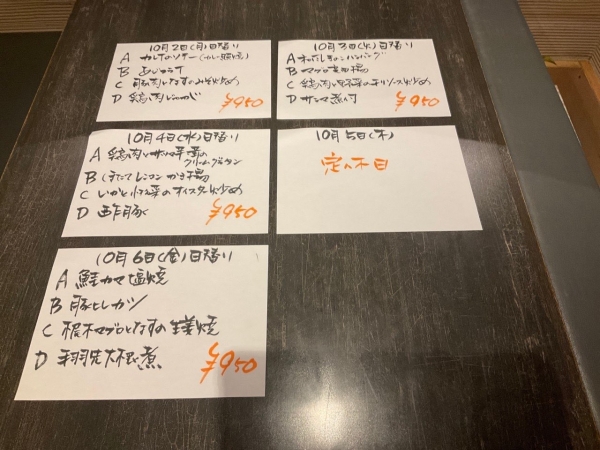 10月2日(月)日替り
A カレイのソテー
B あじフライ
C 豚肉となすのみそ炒め
D 鶏肉
¥950
10月3日(火)日替り
A ハンバーグ
B マグロ竜田揚
C 鶏肉と野菜のチリソース炒め
D サンマ煮付
¥950
10月4日(水)日替り
A 鶏肉と里芋の
クリームグラタン
B ほたてとレンコンかき揚
C いかと小松菜のオイスター炒め
D 酢豚
¥950
10月5日(木)
定休日
10月6日(金)日替り
A 鮭カマ塩焼
B 豚ヒレカツ
C 梶木マグロとなすの生姜焼
D 手羽先大根煮
¥950